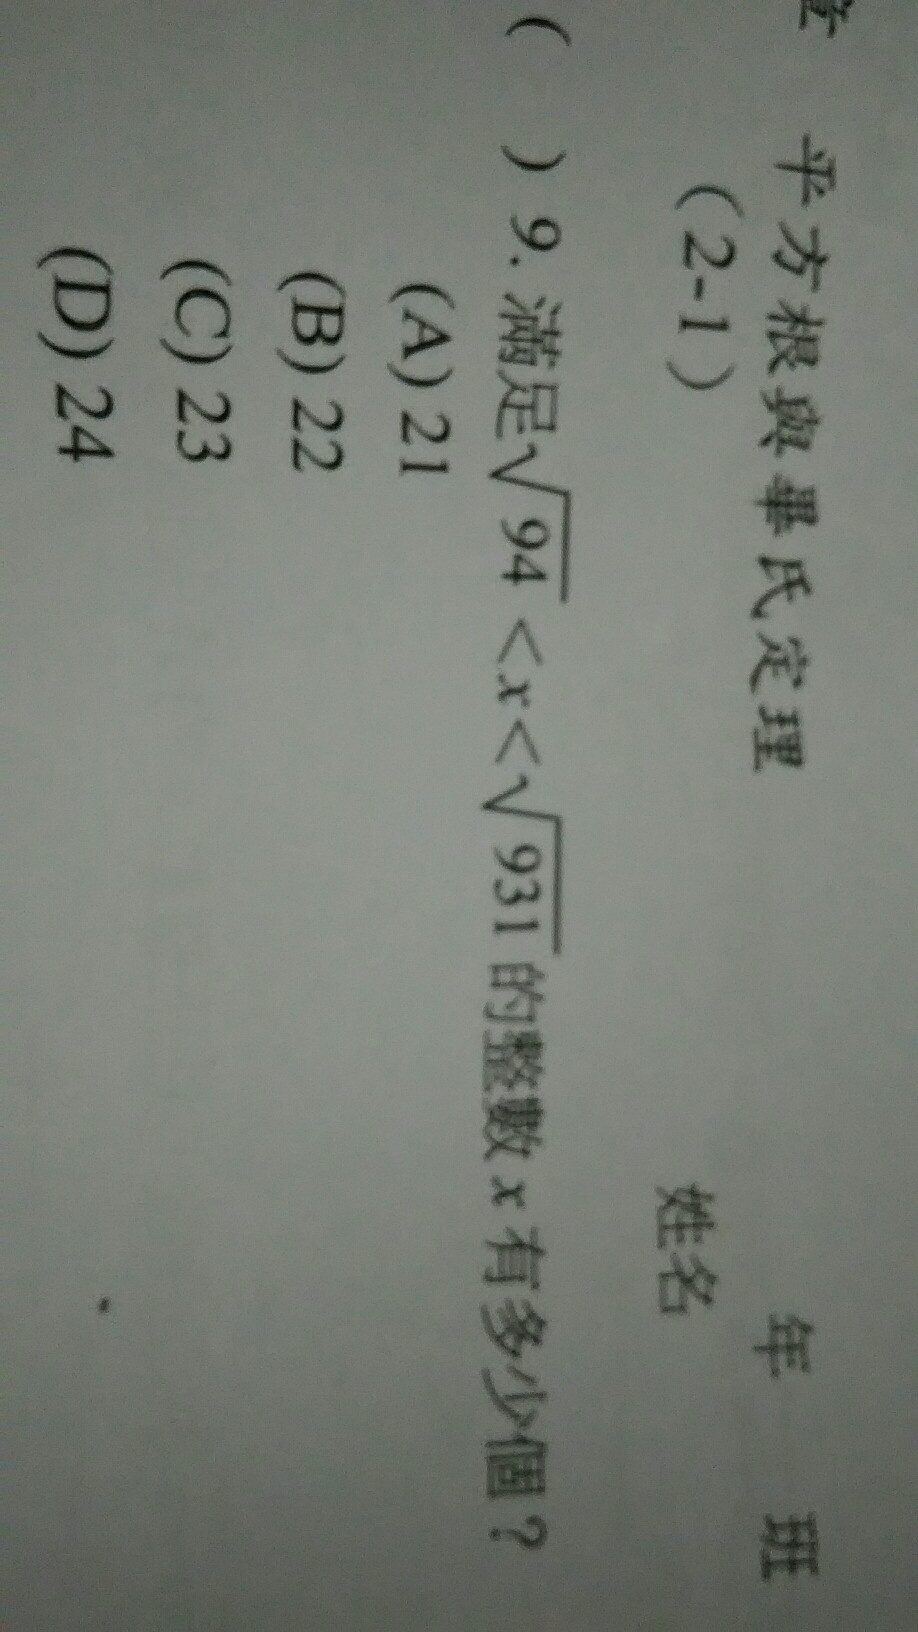 章 平方根與畢氏定理 年 班
(2-1) 姓名
( ) 9. 滿足√94 < x < √931 的整數 x 有多少個？
(A) 21
(B) 22
(C) 23
(D) 24